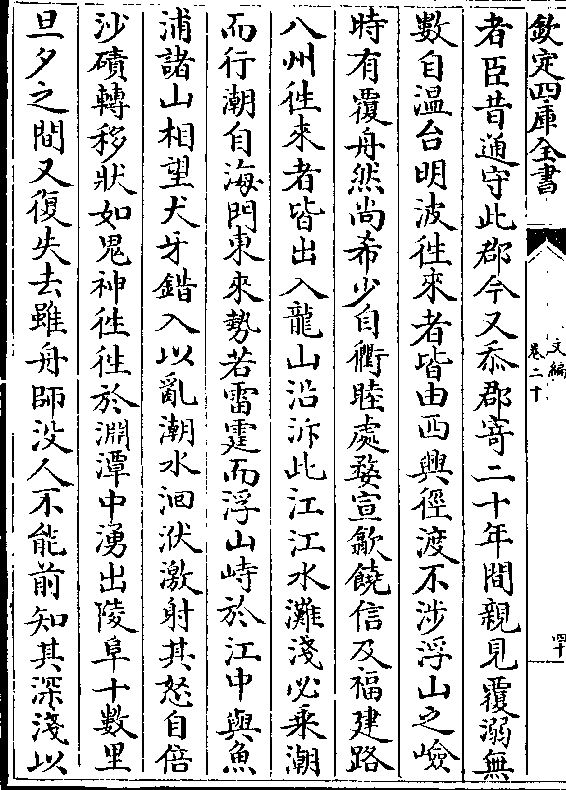 欽定四庫全書
文編
卷二十
四十
者臣昔通守此郡今又忝郡寄二十年間親見覆溺無
數自温台明波徃來者皆由西興徑渡不涉浮山之嶮
時有覆舟然尚希少自衢睦處婺宣歙饒信及福建路
八州徃來者皆出入龍山沿泝此江江水灘淺必乘潮
而行潮自海門東來勢若雷霆而浮山峙於江中與魚
浦諸山相望犬牙錯入以亂潮水洄洑激射其怒自倍
沙磧轉移狀如鬼神徃徃於淵潭中湧出陵阜十數里
旦夕之間又復失去雖舟師没人不能前知其深淺以